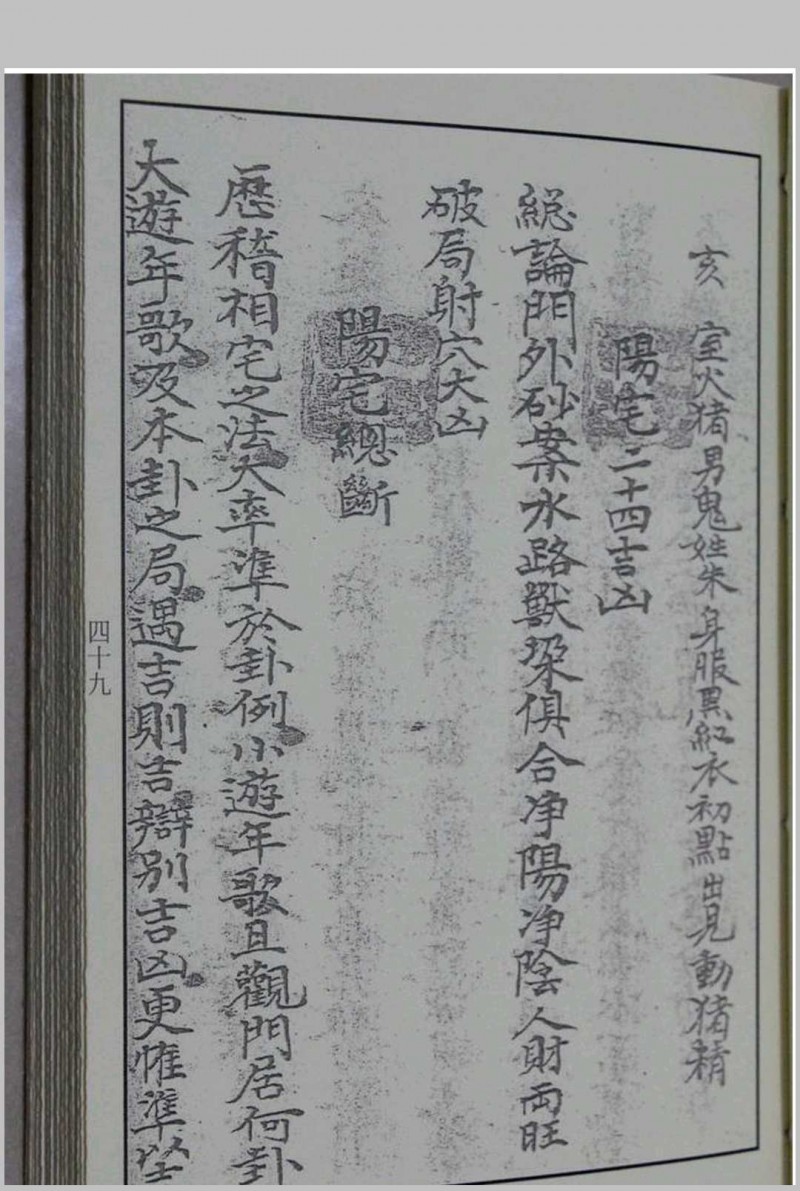 亥　室火猪男鬼姓朱身服黑紅衣初點出見動猪精
陽宅二十四吉凶
総論門外砂案水路獸垜俱合净陽净陰人財兩旺
破局射穴大凶
陽宅總斷
歷稽相宅之法大率準於卦例小遊年歌且觀門居何卦
大遊年歌及本卦之局遇吉則吉辯別吉凶更惟準坐
四十九